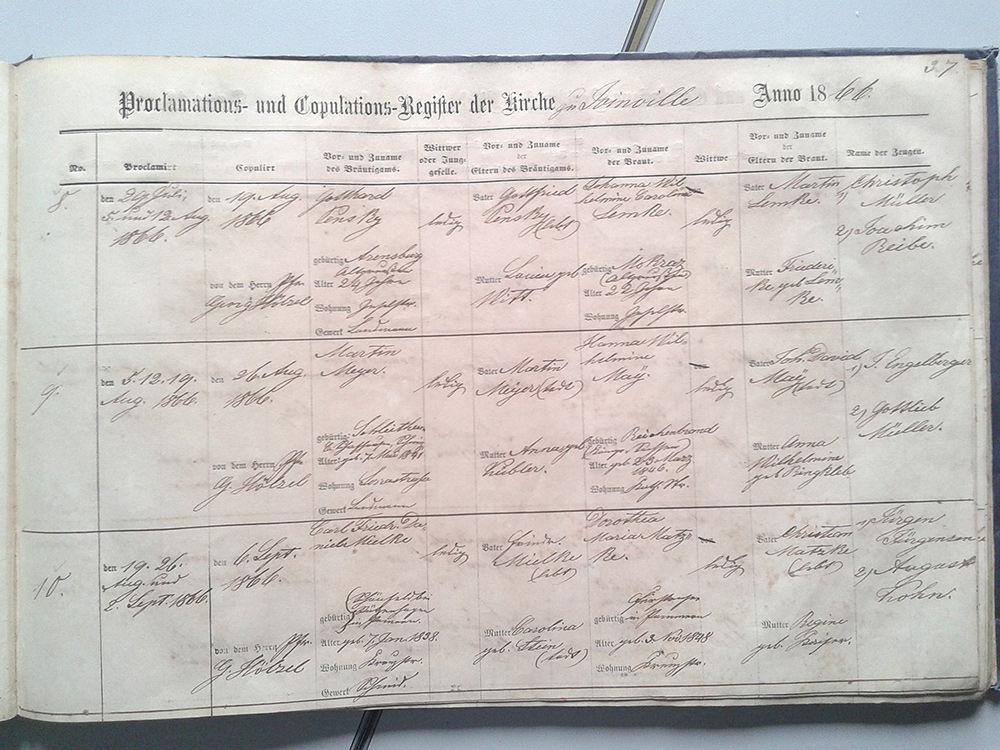 37.
Proclamations- und Copulations-Register der Kirche zu Joinville Anno 1866.
No.
Proclamirt
Copulirt
Vor- und Zuname
des Bräutigams.
Wittwer
oder Jung-
geselle.
Vor- und Zuname
der
Eltern des Bräutigams.
Vor- und Zuname
der Braut.
Wittwe
Vor- und Zuname
der
Eltern der Braut.
Name der Zeugen.
8.
den 29 Juli,
5. und 12. Aug.
1866.
den 19. Aug.
1866
von dem Herrn Pfr.
Georg Hölzel
Gotthard
Pensky
gebürtig Arensburg
Alter 24 Jahre
Wohnung Inselstr.
Gewerk Landmann
ledig
Vater Gottfried
Pensky
(lebt)
Mutter geb.
Witt.
Johanna Wil-
helmine Caroline
Lemke.
gebürtig
Alter 22 Jahre
Wohnung Inselstr.
ledig
Vater Martin
Lemke.
Mutter Friederi-
ke geb. Lem-
ke.
1, Christoph
Müller
2, Joachim
Reibe.
9.
den 5. 12. 19.
Aug. 1866
den 26 Aug.
1866.
von dem Herrn Pfr.
G. Hölzel
Martin
Meyer.
gebürtig
Alter geb. 7 Mai 1841
Wohnung
Gewerk Landmann
ledig
Vater Martin
Meyer (todt)
Mutter Anna geb.
Kübler.
Hanna Wil-
helmine
Maÿ.
gebürtig Reichenbrand
Alter geb. 23 März
1846.
Wohnung
ledig
Vater Joh. David
Maÿ (todt)
Mutter Anna
Wilhelmine
geb.
1, J. Engelberger
2, Gottlieb
Müller.
10.
den 19. 26.
Aug. und
2. Sept. 1866.
den 6. Sept.
1866.
von dem Herrn Pfr.
G. Hölzel
Carl Friedr. Da-
niel Mielke
gebürtig
in Pommern.
Alter geb. 7 Jan 1838.
Wohnung
Gewerk Schmid.
ledig
Vater
Mielke
(lebt)
Mutter Carolina
geb. Stein
(todt)
Dorothea
Maria Matz-
ke.
gebürtig in Pommern
Alter geb. 3 Nov 1848
Wohnung
ledig
Vater Christian
Matzke
(lebt)
Mutter Regine
geb.
1, Jürgen
Jürgensen
2, August
Hohn.